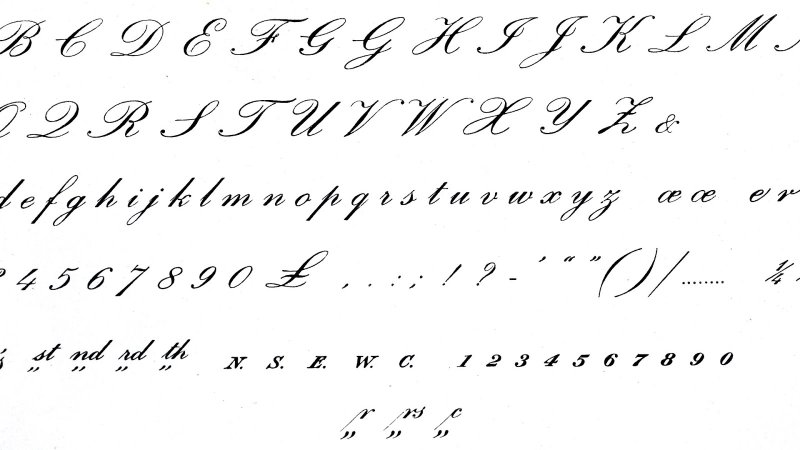 B C D E F G G H I J K L M
Q R S T U V W X Y Z &
d e f g h i j k l m n o p q r s t u v w x y z æ œ e r
4 5 6 7 8 9 0 £ , . : ; ! ? - ' “ ” ( ) / ........ ¼
st nd rd th N. S. E. W. C. 1 2 3 4 5 6 7 8 9 0
r rs c